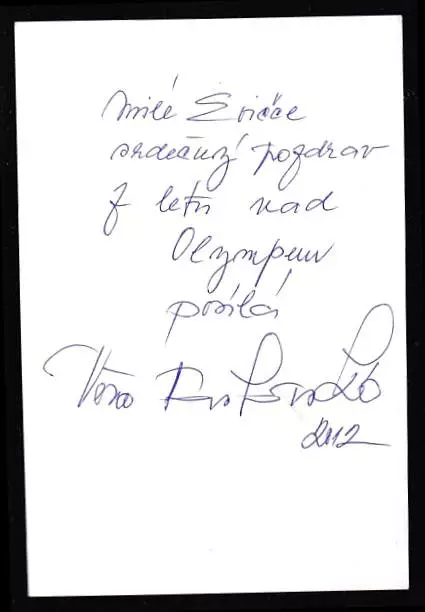 Milé Evičce
srdečný pozdrav
z letu nad
Olympem
posílá
Věra
2012